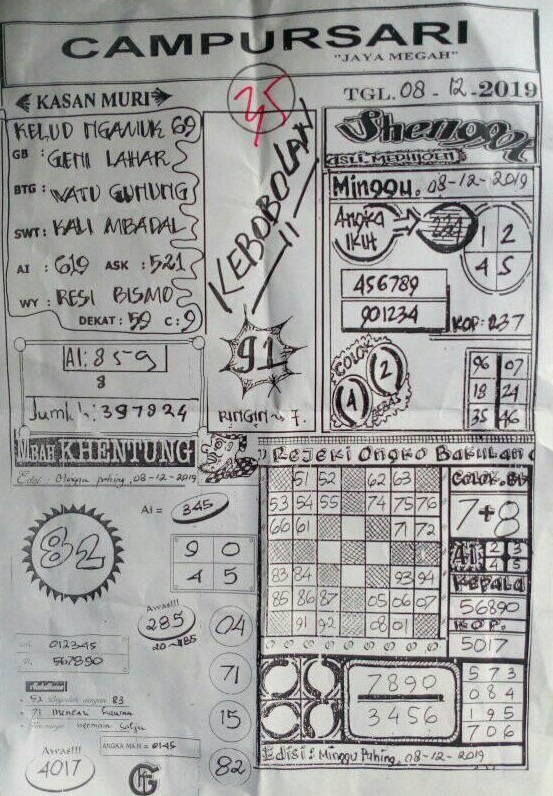 CAMPURSARI
"JAYA MEGAH"
KASAN MURI
35
TGL. 08 - 12 - 2019
KELUD NGAMUK 69
GB : GENI LAHAR
BTG : WATU GUNUNG
SWT : KALI MBADAL
AI : 619 ASK : 521
WY : RESI BISMO
DEKAT : 59 C : 9
AI : 859
8
Jumlah : 397824
KEBOBOLAN
91
RINGIN
Shenggot
ASLI MEDHIOEN
Minggu, 08-12-2019
Angka
IKUT
1 2
4 5
456789
901234
KOP: 237
COLOK
BEBAS
4 2
96 07
18 24
35 46
MBAH KHENTUNG
Edisi : Minggu Pahing, 08-12-2019
Ai = 345
82
9 0
4 5
Awas!!!
285
20 - 185
04
71
15
82
012345
567890
52 83
71
Awas!!!
4017
ANGKA MAIN = 0145
Rejeki Ongko Bakulan
51 52 62 63
53 54 55 74 75 76
60 61 71 72
83 84 93 94
85 86 87 05 06 07
91 92 08 01
COLOK.BS
7+8
AI 2 3
4 5
KEPALA
56890
KOP.
5017
7890
3456
573
084
195
706
Edisi : Minggu Pahing, 08-12-2019